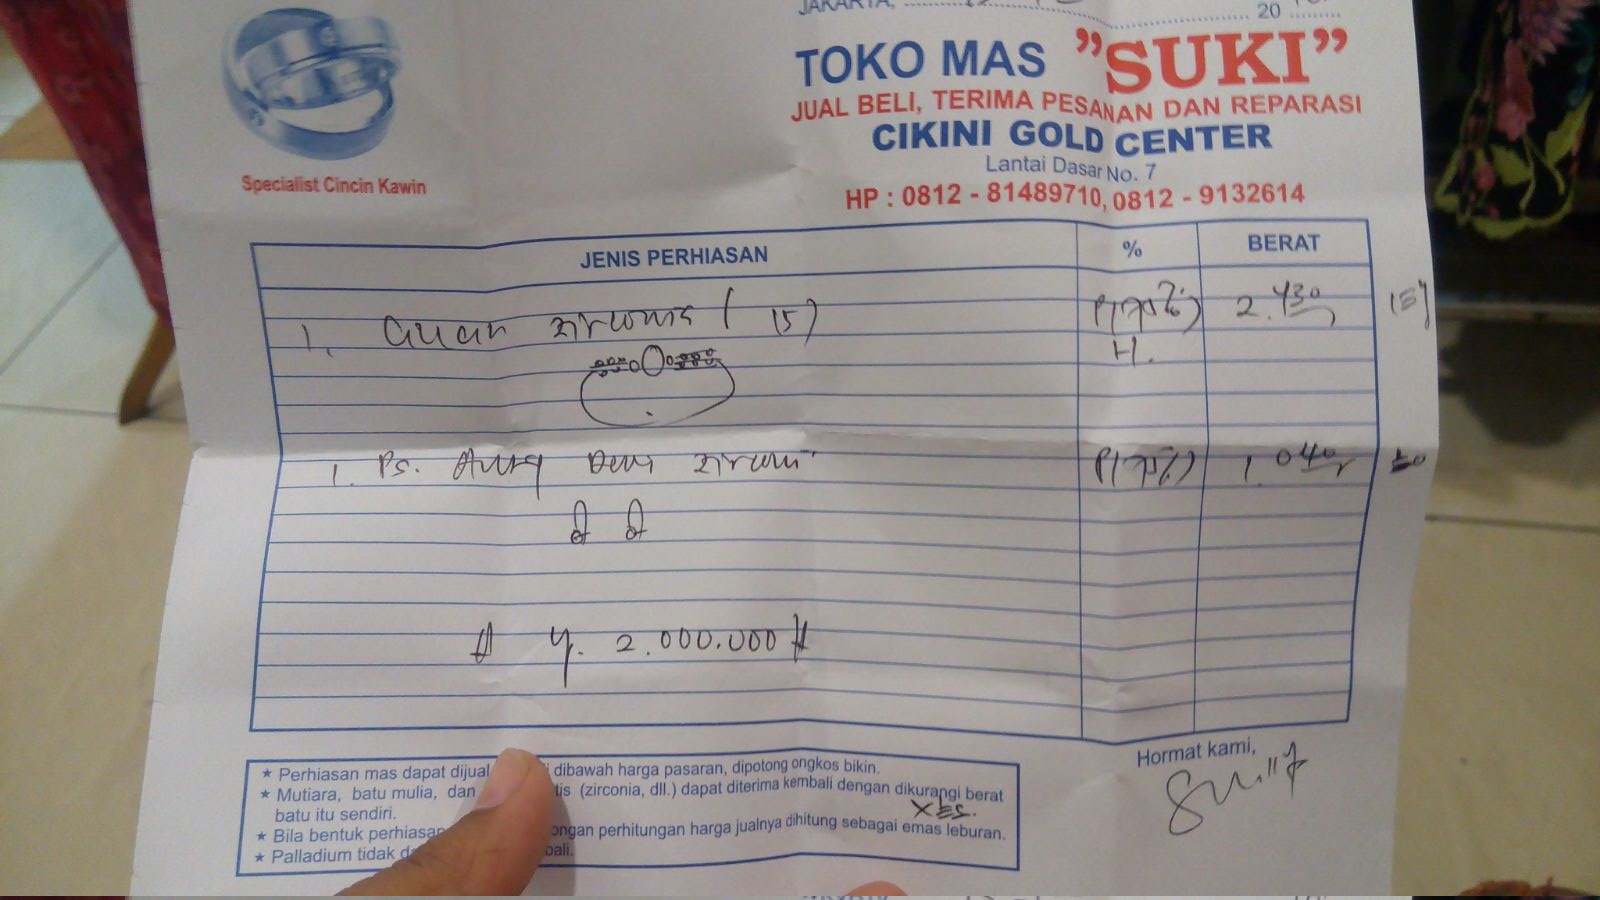 JAKARTA, 20
TOKO MAS "SUKI"
JUAL BELI, TERIMA PESANAN DAN REPARASI
CIKINI GOLD CENTER
Lantai Dasar No. 7
HP : 0812 - 81489710, 0812 - 9132614
Specialist Cincin Kawin
JENIS PERHIASAN % BERAT
1. zirconia (15) P(70%) 2.430
H.
1. Ps. zirconi P(70%) 1.040
2.000.000
Hormat kami,
★ Perhiasan mas dapat dijual dibawah harga pasaran, dipotong ongkos bikin.
★ Mutiara, batu mulia, dan tis (zirconia, dll.) dapat diterima kembali dengan dikurangi berat
batu itu sendiri.
★ Bila bentuk perhiasan ongan perhitungan harga jualnya dihitung sebagai emas leburan.
★ Palladium tidak da bali.